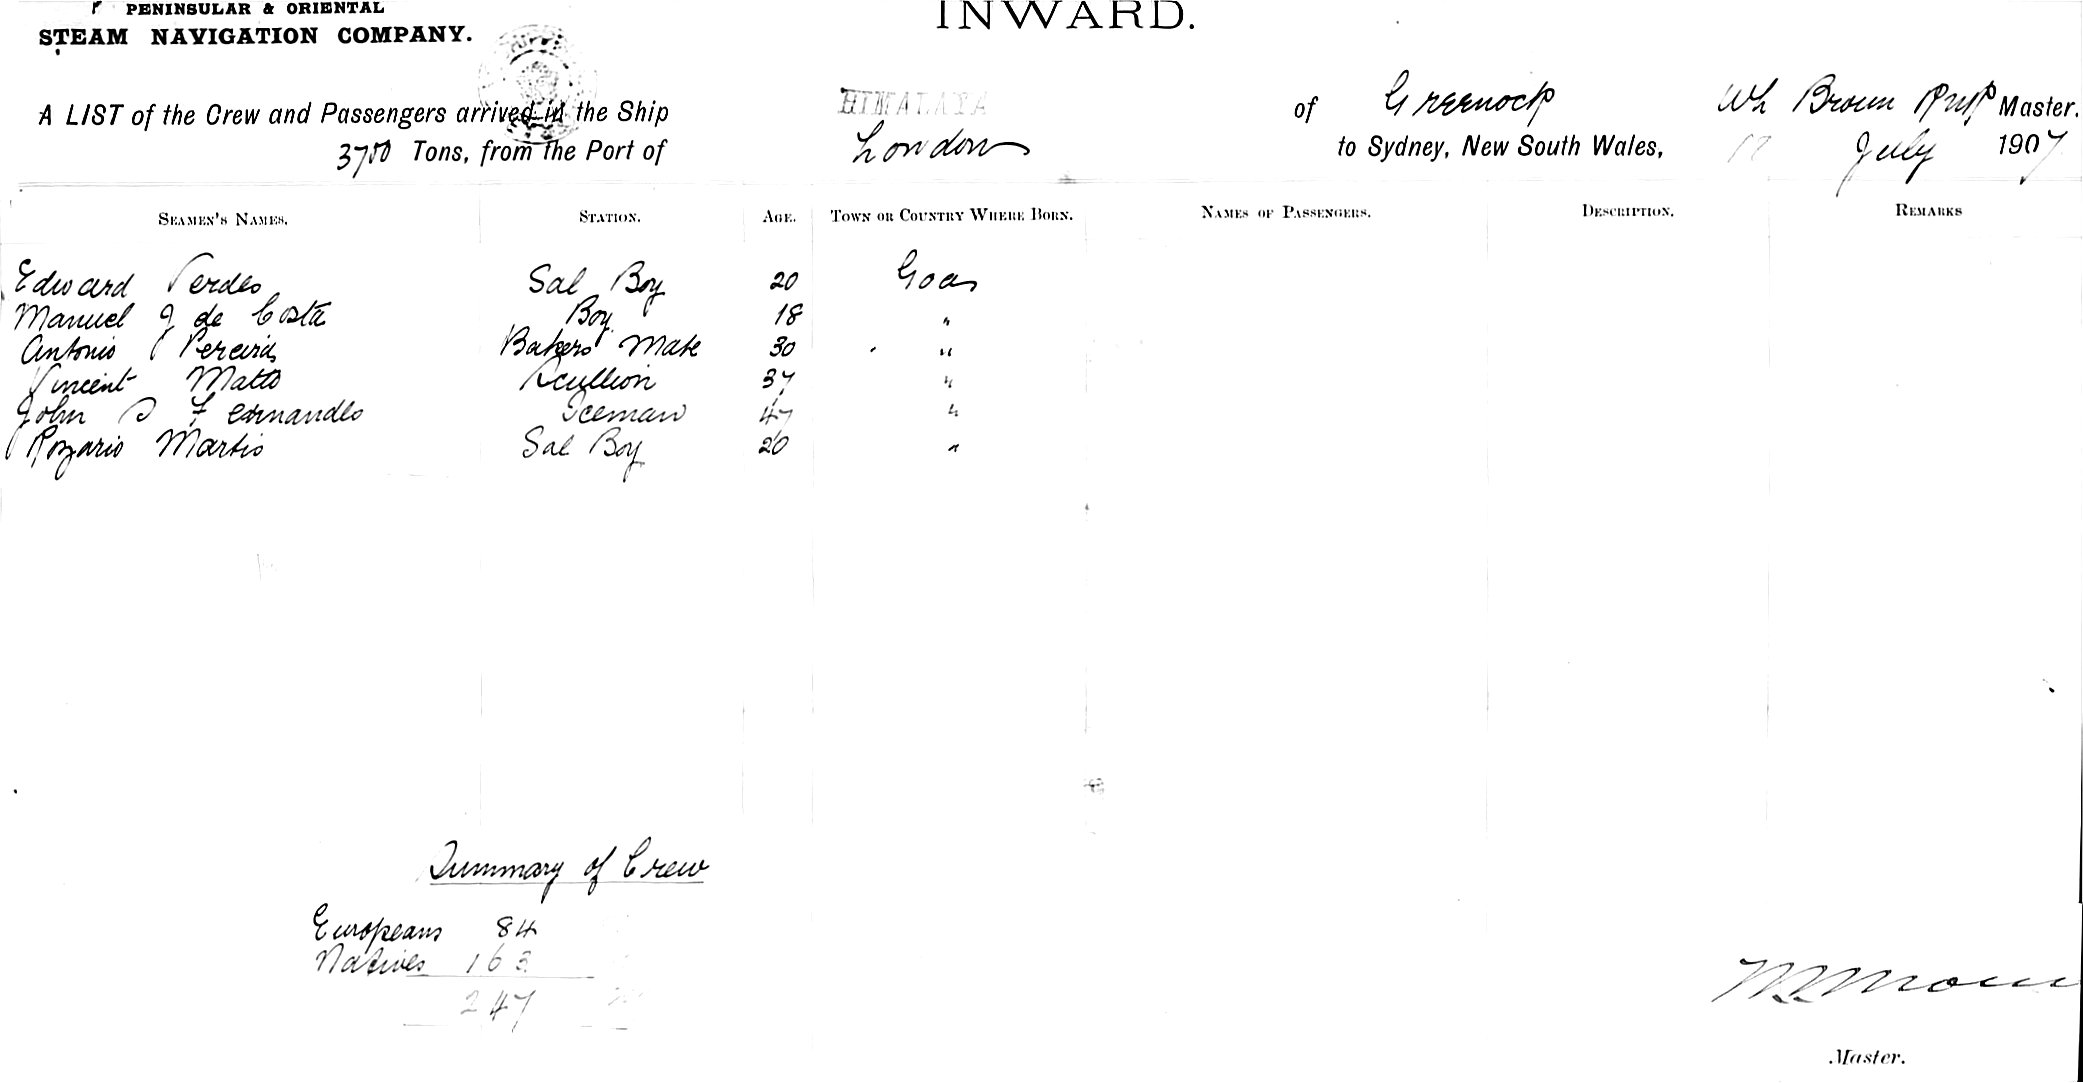 PENINSULAR & ORIENTAL
STEAM NAVIGATION COMPANY.
INWARD.
A LIST of the Crew and Passengers arrived in the Ship HIMALAYA of Greenock Wh Brown RNR Master.
3700 Tons, from the Port of London to Sydney, New South Wales, 17 July 1907
SEAMEN'S NAMES. STATION. AGE. TOWN OR COUNTRY WHERE BORN. NAMES OF PASSENGERS. DESCRIPTION. REMARKS
Edward Verdes Sal Boy 20 Goa
Manuel J de Costa Boy 18 "
Antonio Pereira Bakers Mate 30 "
Vincent Matto Scullion 37 "
John D Fernandes Iceman 47 "
Rozario Martis Sal Boy 20 "
Summary of Crew
Europeans 84
Natives 163
247
Master.